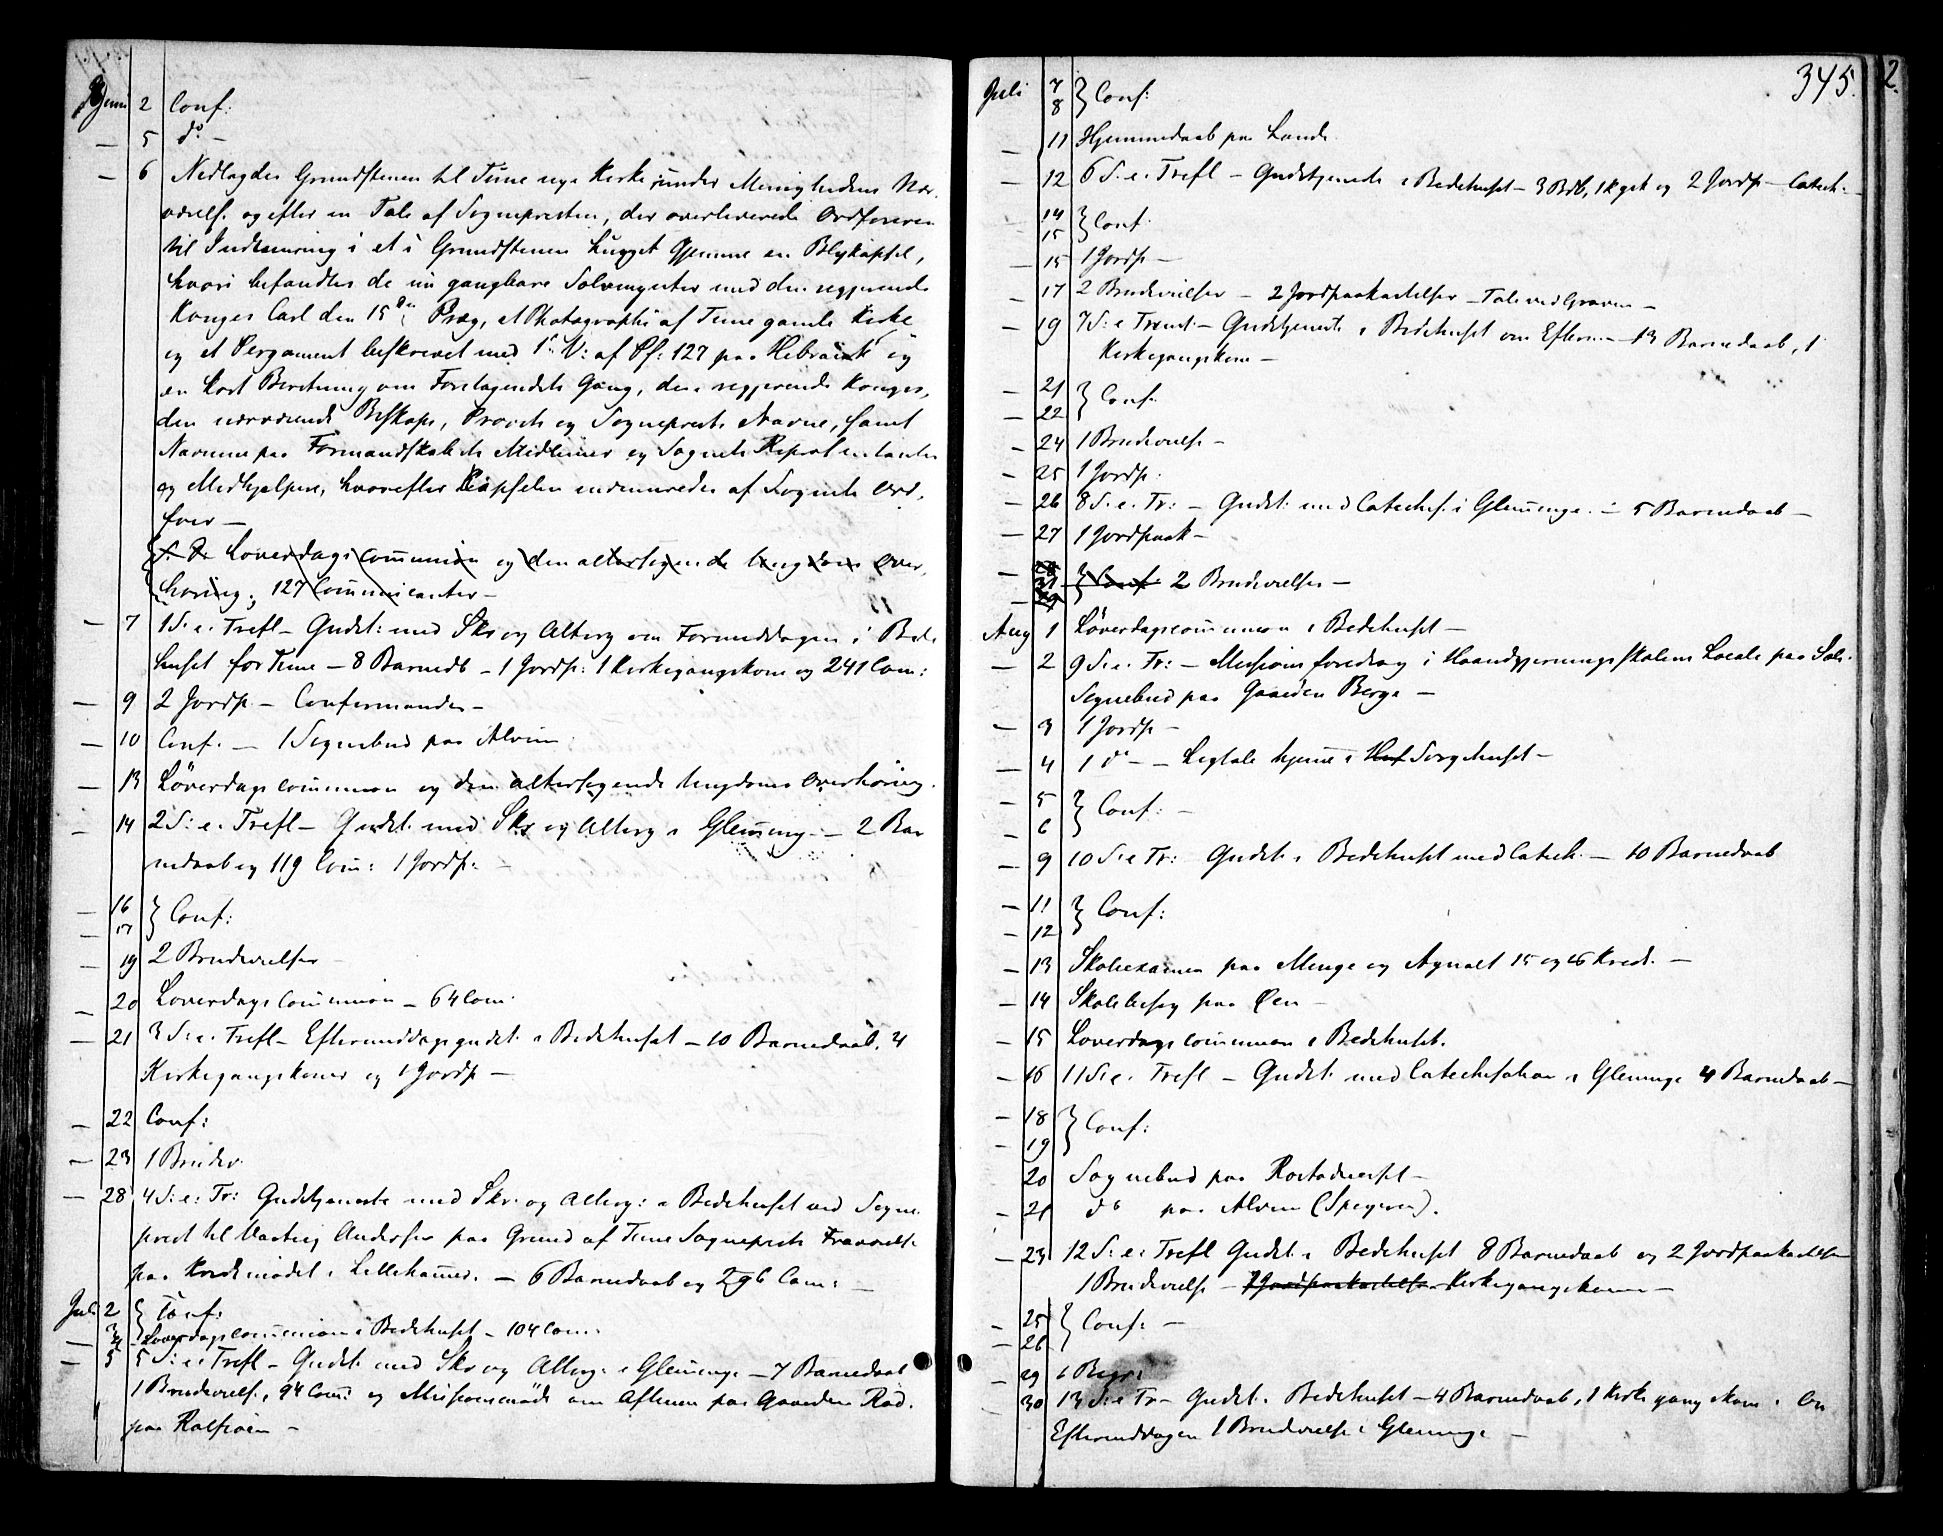 Juni 2 Conf:
— 5 do —
— 6 Nedlagdes Grundstenen til Tune nye Kirke under Menighedens Nær-
værelse og efter en Tale af Sognepresten, der overleverede Ordføreren
til Indmuring i et i Grundstenen hugget Gjemme en Blykapsel,
hvori befandtes de nu gangbare Sølvmynter med den regjerende
Konges Carl den 15de Præg, et Photographi af Tune gamle Kirke
og et Pergament beskrevet med 1ste V: af Ps: 127 paa Hebraisk og
en kort Beretning om Foretagendets Gang, den regjerende Konges,
den nærværende Biskops, Provsts og Sogneprests Navne, samt
Navnene paa Formandskabets Medlemer og Sognets Repræsentanter
og Medhjælpere, hvorefter Kapselen indmuredes af Sognets Ord-
fører —
Løverdagscommunion og den altersøgende Ungdoms Over-
høring, 127 Communicanter —
— 7 1 S. e. Trefl — Gudst: med Skr og Alterg om Formiddagen i Bede-
huset for Tune — 8 Barnedb — 1 Jordp: 1 Kirkegangskone og 241 Com:
— 9 2 Jordp. — Confirmander —
— 10 Conf. — 1 Sognebud paa Alvim
— 13 Löverdagscommunion og den altersøgende Ungdoms Overhöring.
— 14 2 S: e. Trefl — Gudst. med Skr og Alterg i Glemmg. — 2 Bar
nedaab og 119 Com: 1 Jordp: —
— 16
— 17 } Conf:
— 19 2 Brudevielser —
— 20 Loverdagscommunion — 64 Com.
— 21 3 S. e. Trefl — Eftermiddagsgudst. i Bedehuset — 10 Barnedaab, 4
Kirkegangskoner og 1 Jordp —
— 22 Conf:
— 23 1 Brudev.
— 28 4 S: e: Tr: Gudstjeneste med Skr: og Alterg: i Bedehuset ved Sogne-
prest til Varteig Andersen paa Grund af Tune Sogneprests Fraværelse
paa Kredsmødet i Lillehammer. — 6 Barnedaab og 296 Com: —
Juli 2
3 } Conf:
— 4 Loverdagscommunion i Bedehuset — 104 Com:
— 5 5 S: e: Trefl — Gudst. med Skr og Alterg. i Glemminge — 7 Barnedaab
1 Brudevielse, 94 Com: og Missionsmöde om Aftenen paa Gaarden Rød.
paa Rolfsöen —
345.
2.
Juli 7
8 } Conf:
— 11 Hjemmedaab paa Lande
— 12 6 S. e. Trefl — Gudstjeneste i Bedehuset — 3 Bdb, 1 Kgsk og 2 Jordp — Catech. —
14
15 } Conf.
— 15 1 Jordp —
— 17 2 Brudevielser — 2 Jordpaakastelser — Tale ved Graven —
— 19 7 S: e Trinit — Gudstjeneste i Bedehuset om Efterm. — 13 Barnedaab, 1
Kirkegangskone —
— 21
— 22 } Conf.
— 24 1 Brudevielse —
— 25 1 Jordp.
— 26 8 S. e. Tr: — Gudst: med Catechis. i Glemminge. — 5 Barnedaab —
— 27 1 Jordpaak —
— 31 } Conf. 2 Brudevielser —
Aug 1 Løverdagscommunion i Bedehuset —
— 2 9 S. e. Tr: — Missionsforedrag i Haandgjerningsskolens Locale paa Sole.
Sognebud paa Gaarden Berga —
— 3 1 Jordp —
— 4 1 do — Ligtale hjemme i Hus Sørgehuset —
— 5
— 6 } Conf: —
— 9 10 S: e Tr: Gudst. i Bedehuset med Catech. — 10 Barnedaab
— 11
— 12 } Conf:
— 13 Skoleexamen paa Menge og Agnalt 15 og 16 Kreds. —
— 14 Skolebesøg paa Øen —
— 15 Loverdagscommunion i Bedehuset.
— 16 11 S: e. Trefl — Gudst. med Catechisation i Glemminge 4 Barnedaab —
— 18
— 19 } Conf:
20 Sognebud paa
— 21 do paa Alvim (Spigeren).
— 23 12 S: e: Trefl Gudst. i Bedehuset 8 Barnedaab og 2 Jordpaakastelser
1 Brudevielse — 1 Jordpaakastelse Kirkegangskone —
— 25
— 26 } Conf: —
— 29 6 Begr:
— 30 13 S: e Tr — Gudst. i Bedehuset — 4 Barnedaab, 1 Kirkegangskone. Om
Eftermiddagen 1 Brudevielse i Glemminge —